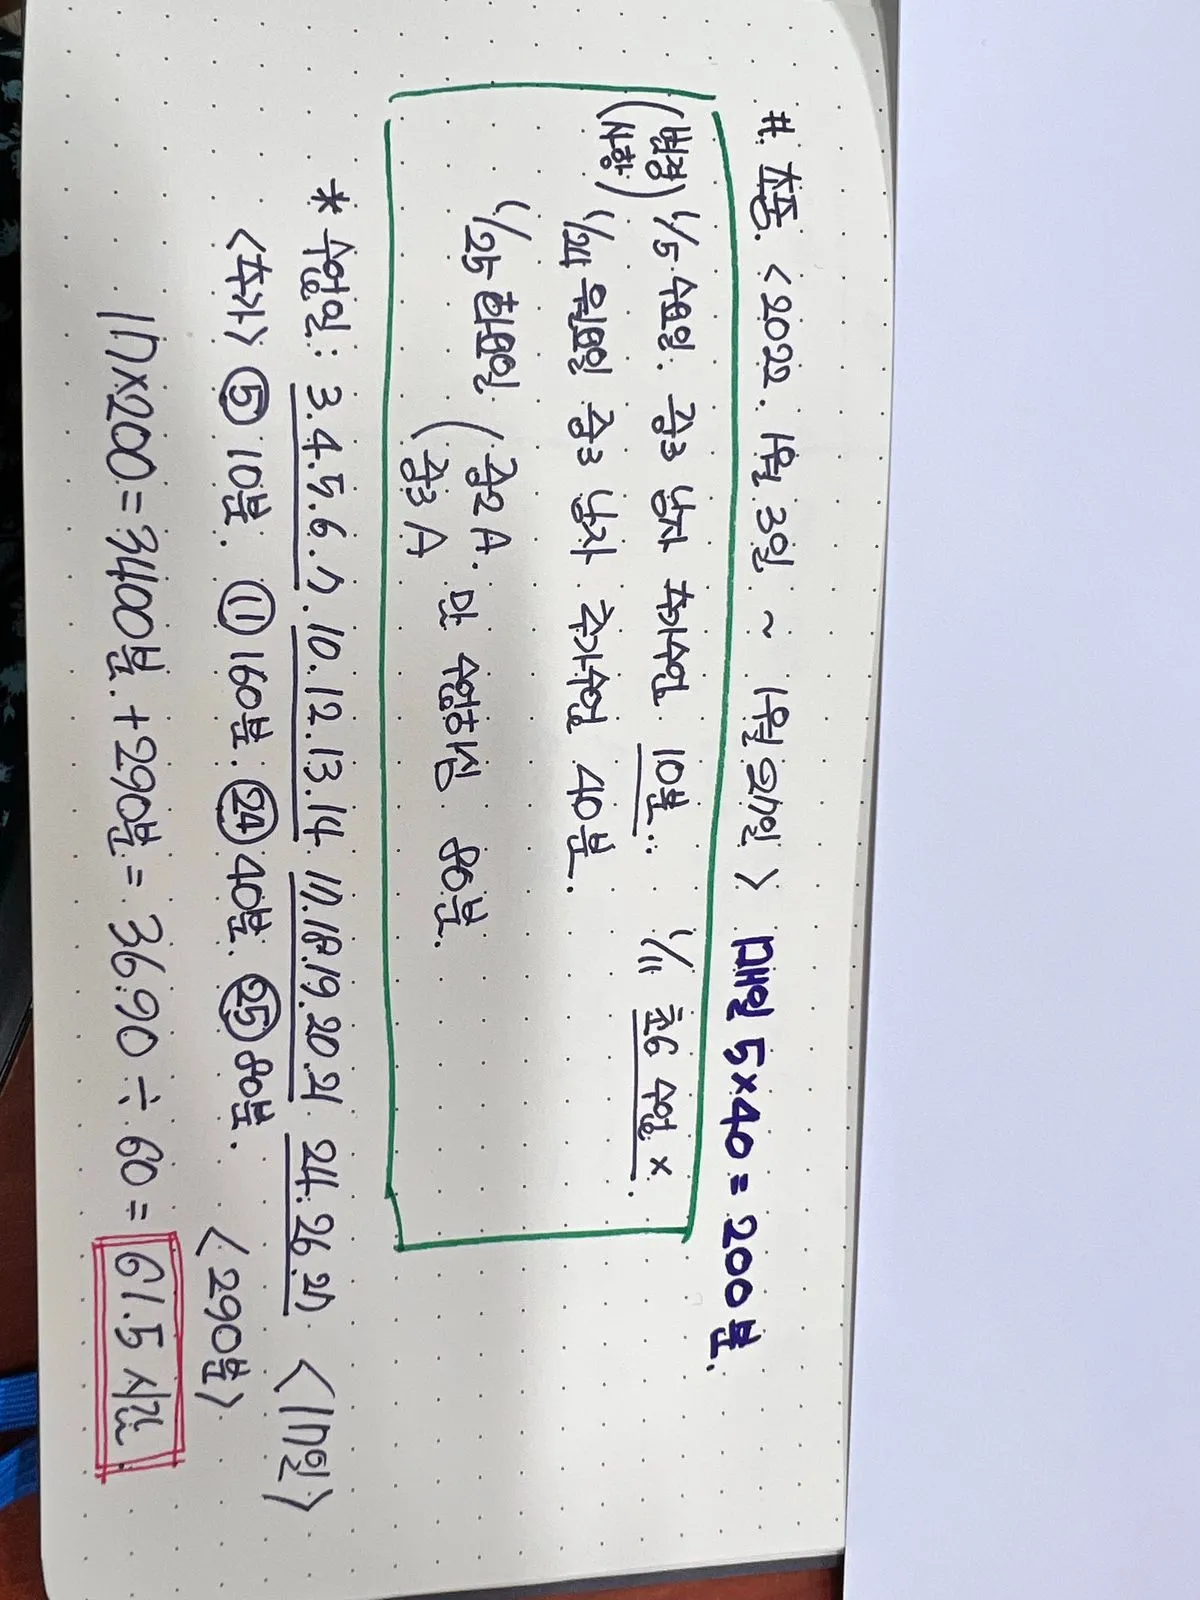 #. 초등. <2022. 1월 3일 ~ 1월 27일> 매일 5×40 = 200분.
(변경사항) 1/5 수요일. 중3 남자 추가수업 10분.. 1/11 초6 수업 ×.
1/24 월요일 중3 남자 추가수업 40분.
1/25 화요일 (중2 A. 중3 A 만 수업하심 80분.
* 수업일: 3.4.5.6.7. 10.12.13.14 17.18.19.20.21 24.26.27 <17일>
<추가> ⑤ 10분. ⑪ 160분. ㉔ 40분. ㉕ 80분. <290분>
17×200 = 3400분. + 290분 = 3690 ÷ 60 = 61.5 시간.